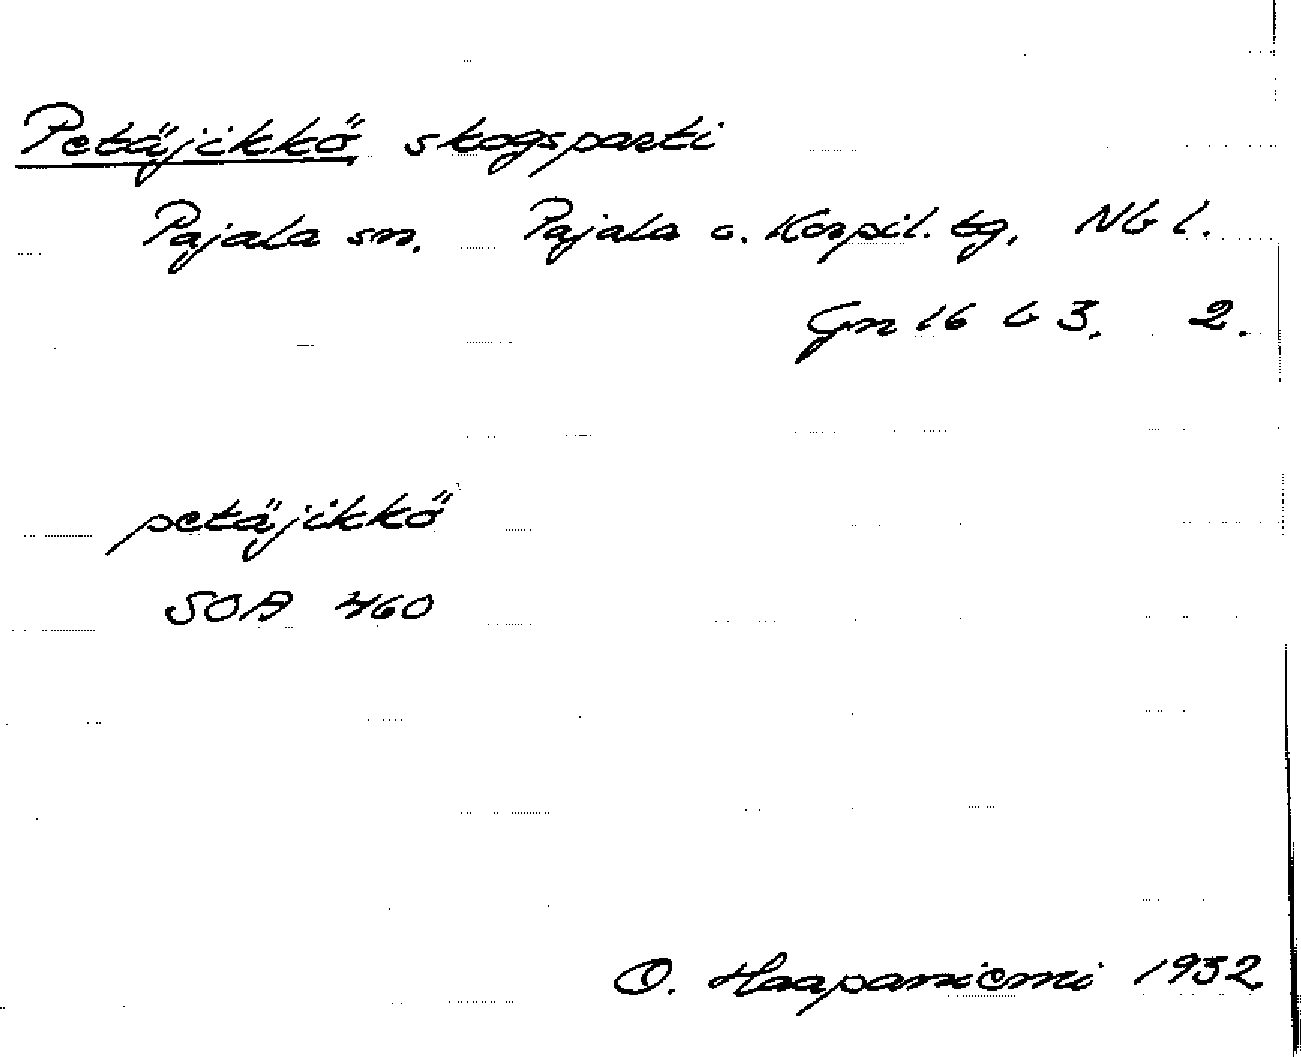 Petäjikkö skogsparti
Pajala sn. Pajala o. Korpil. tg, Nb l.
Gn 16 b 3. 2.
petäjikkö
SOA 460
O. Haapaniemi 1932